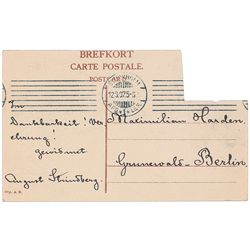 BREFKORT
CARTE POSTALE.
POSTCARD
12.9.07.5-6
In
Dankbarkeit! Ver
ehrung!
gewidmet
August Strindberg.
Maximilian Harden.
Grunewald-Berlin.